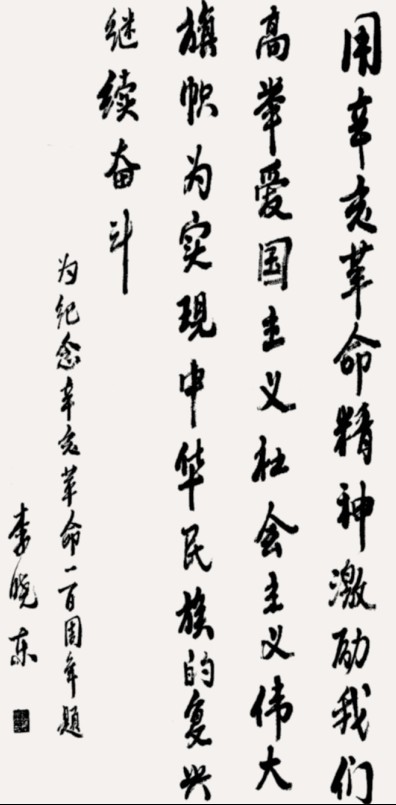 用辛亥革命精神激励我们
高举爱国主义社会主义伟大
旗帜为实现中华民族的复兴
继续奋斗
为纪念辛亥革命一百周年题
李晓东